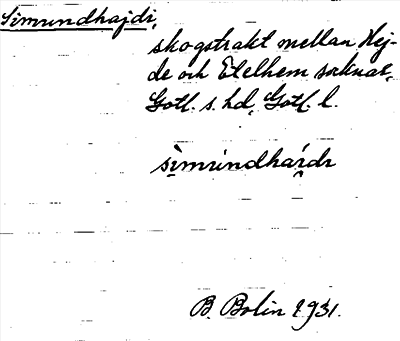 Simrundhajdi,
skogstrakt mellan Hej-
de och Etelhem socknar,
Gotl. s. hd, Gotl. l.
B. Bolin 1931.